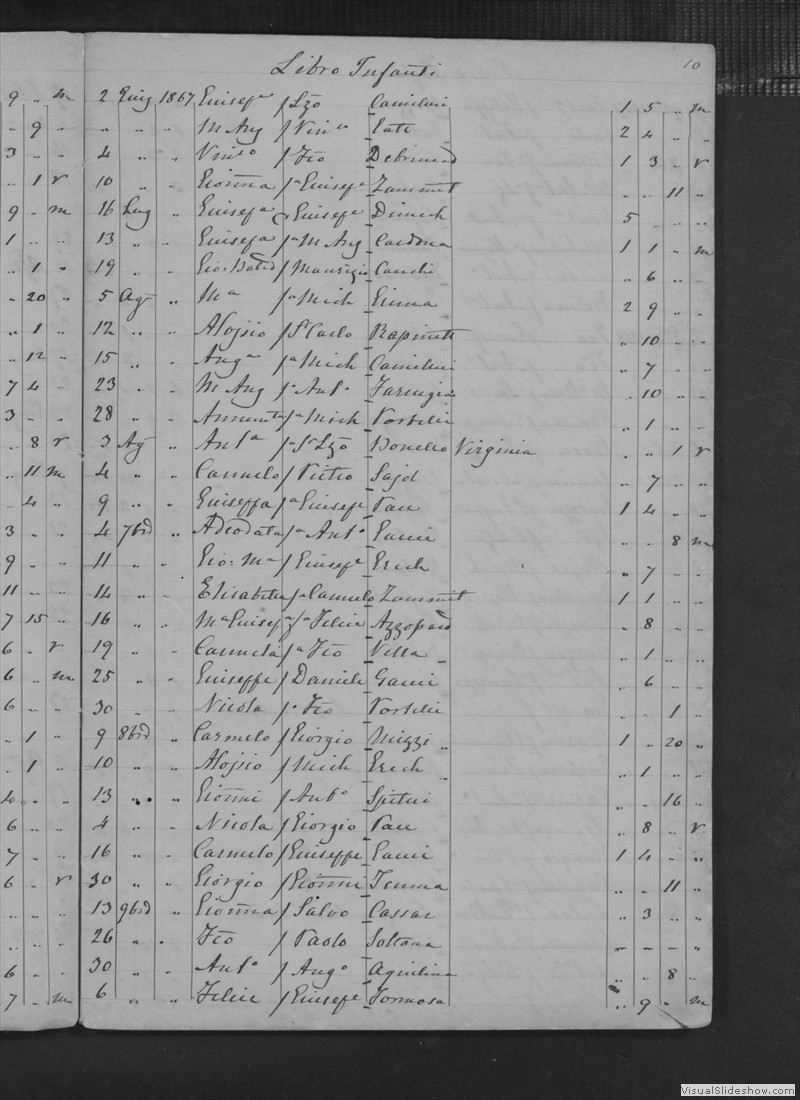 10
Libro Infanti
9 .. m 2 Giug 1867 Giusefa f Lzo Camilleri 1 5 .. m
.. 9 .. .. .. .. M Ang f Vinco 2 4 .. ..
3 .. .. 4 .. .. Vinco f Fco 1 3 .. v
.. 1 v 10 .. .. Gionna fa Giusefe Zammit .. .. 11 ..
9 .. m 16 Lug .. Giusefa Giusefe Dimech 5 .. .. ..
1 .. .. 13 .. .. Giusefa fa M Ang Cardona 1 1 .. m
.. 1 .. 19 .. .. Gio: Batta f Maurizio Cauchi .. 6 .. ..
.. 20 .. 5 Ag .. Ma fa Mich 2 9 .. ..
.. 1 .. 12 .. .. Alojsio f Sr Carlo Rapinett .. 10 .. ..
.. 12 .. 15 .. .. Anga fa Mich Camilleri .. 7 .. ..
7 4 .. 23 .. .. M Ang fa Anto Farrugia .. 10 .. ..
3 .. .. 28 .. .. Annunta fa Mich Portelli .. 1 .. ..
.. 8 v 3 Ag .. Anta fa Sr Lzo Bonello Virginia .. .. 1 v
.. 11 m 4 .. .. Carmelo f Pietro Sajd .. 7 .. ..
.. 4 .. 9 .. .. Giuseffa fa Giusefe Pace 1 4 .. ..
3 .. .. 4 7brd .. Adeodata fa Anto Gauci .. .. 8 m
9 .. .. 11 .. .. Gio: Ma f Giusefe Grech .. 7 .. ..
11 .. .. 14 .. .. Elisabetta fa Carmelo Zammit 1 1 .. ..
7 15 .. 16 .. .. Ma Giusefa fa Felice Azzopard .. 8 .. ..
6 .. v 19 .. .. Carmela fa Fco Vella .. 1 .. ..
6 .. m 25 .. .. Giuseffe f Daniele Gauci .. 6 .. ..
6 .. .. 30 .. .. Nicola f Fco Portelli .. .. 1 ..
.. 1 .. 9 8brd .. Carmelo f Giorgio Mizzi 1 .. 20 ..
.. 1 .. 10 .. .. Alojsio f Mich Grech .. 1 .. ..
.. .. 13 .. .. Gionni f Anto Spiteri .. .. 16 ..
6 .. .. 4 .. .. Nicola f Giorgio Pace .. 8 .. v
7 .. .. 16 .. .. Carmelo f Giuseffe Gauci 1 4 .. ..
6 .. v 30 .. .. Giorgio f Gionni .. .. 11 ..
.. .. .. 13 9brd .. Gionna f Salvo Cassar .. 3 .. ..
.. .. .. 26 .. .. Fco f Paolo Soltana – – – ..
6 .. .. 30 .. .. Anto f Ango Aquilina .. .. 8 ..
7 .. m 6 .. .. Felice f Giusefe Formosa .. 9 .. m
VisualSlideshow.com